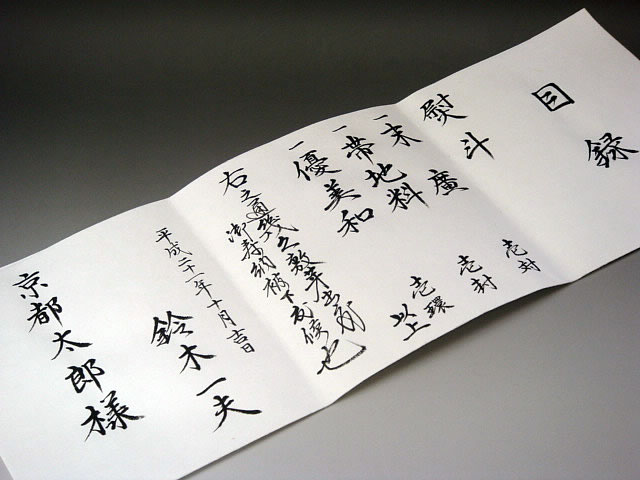 目録
熨斗
一末廣 壱封
一帯地料 壱封
一優美和 壱環
以上
右之通幾久敷芽出度
御寿納被下度候也
平成二十一年十月吉日
鈴木一夫
京都太郎様